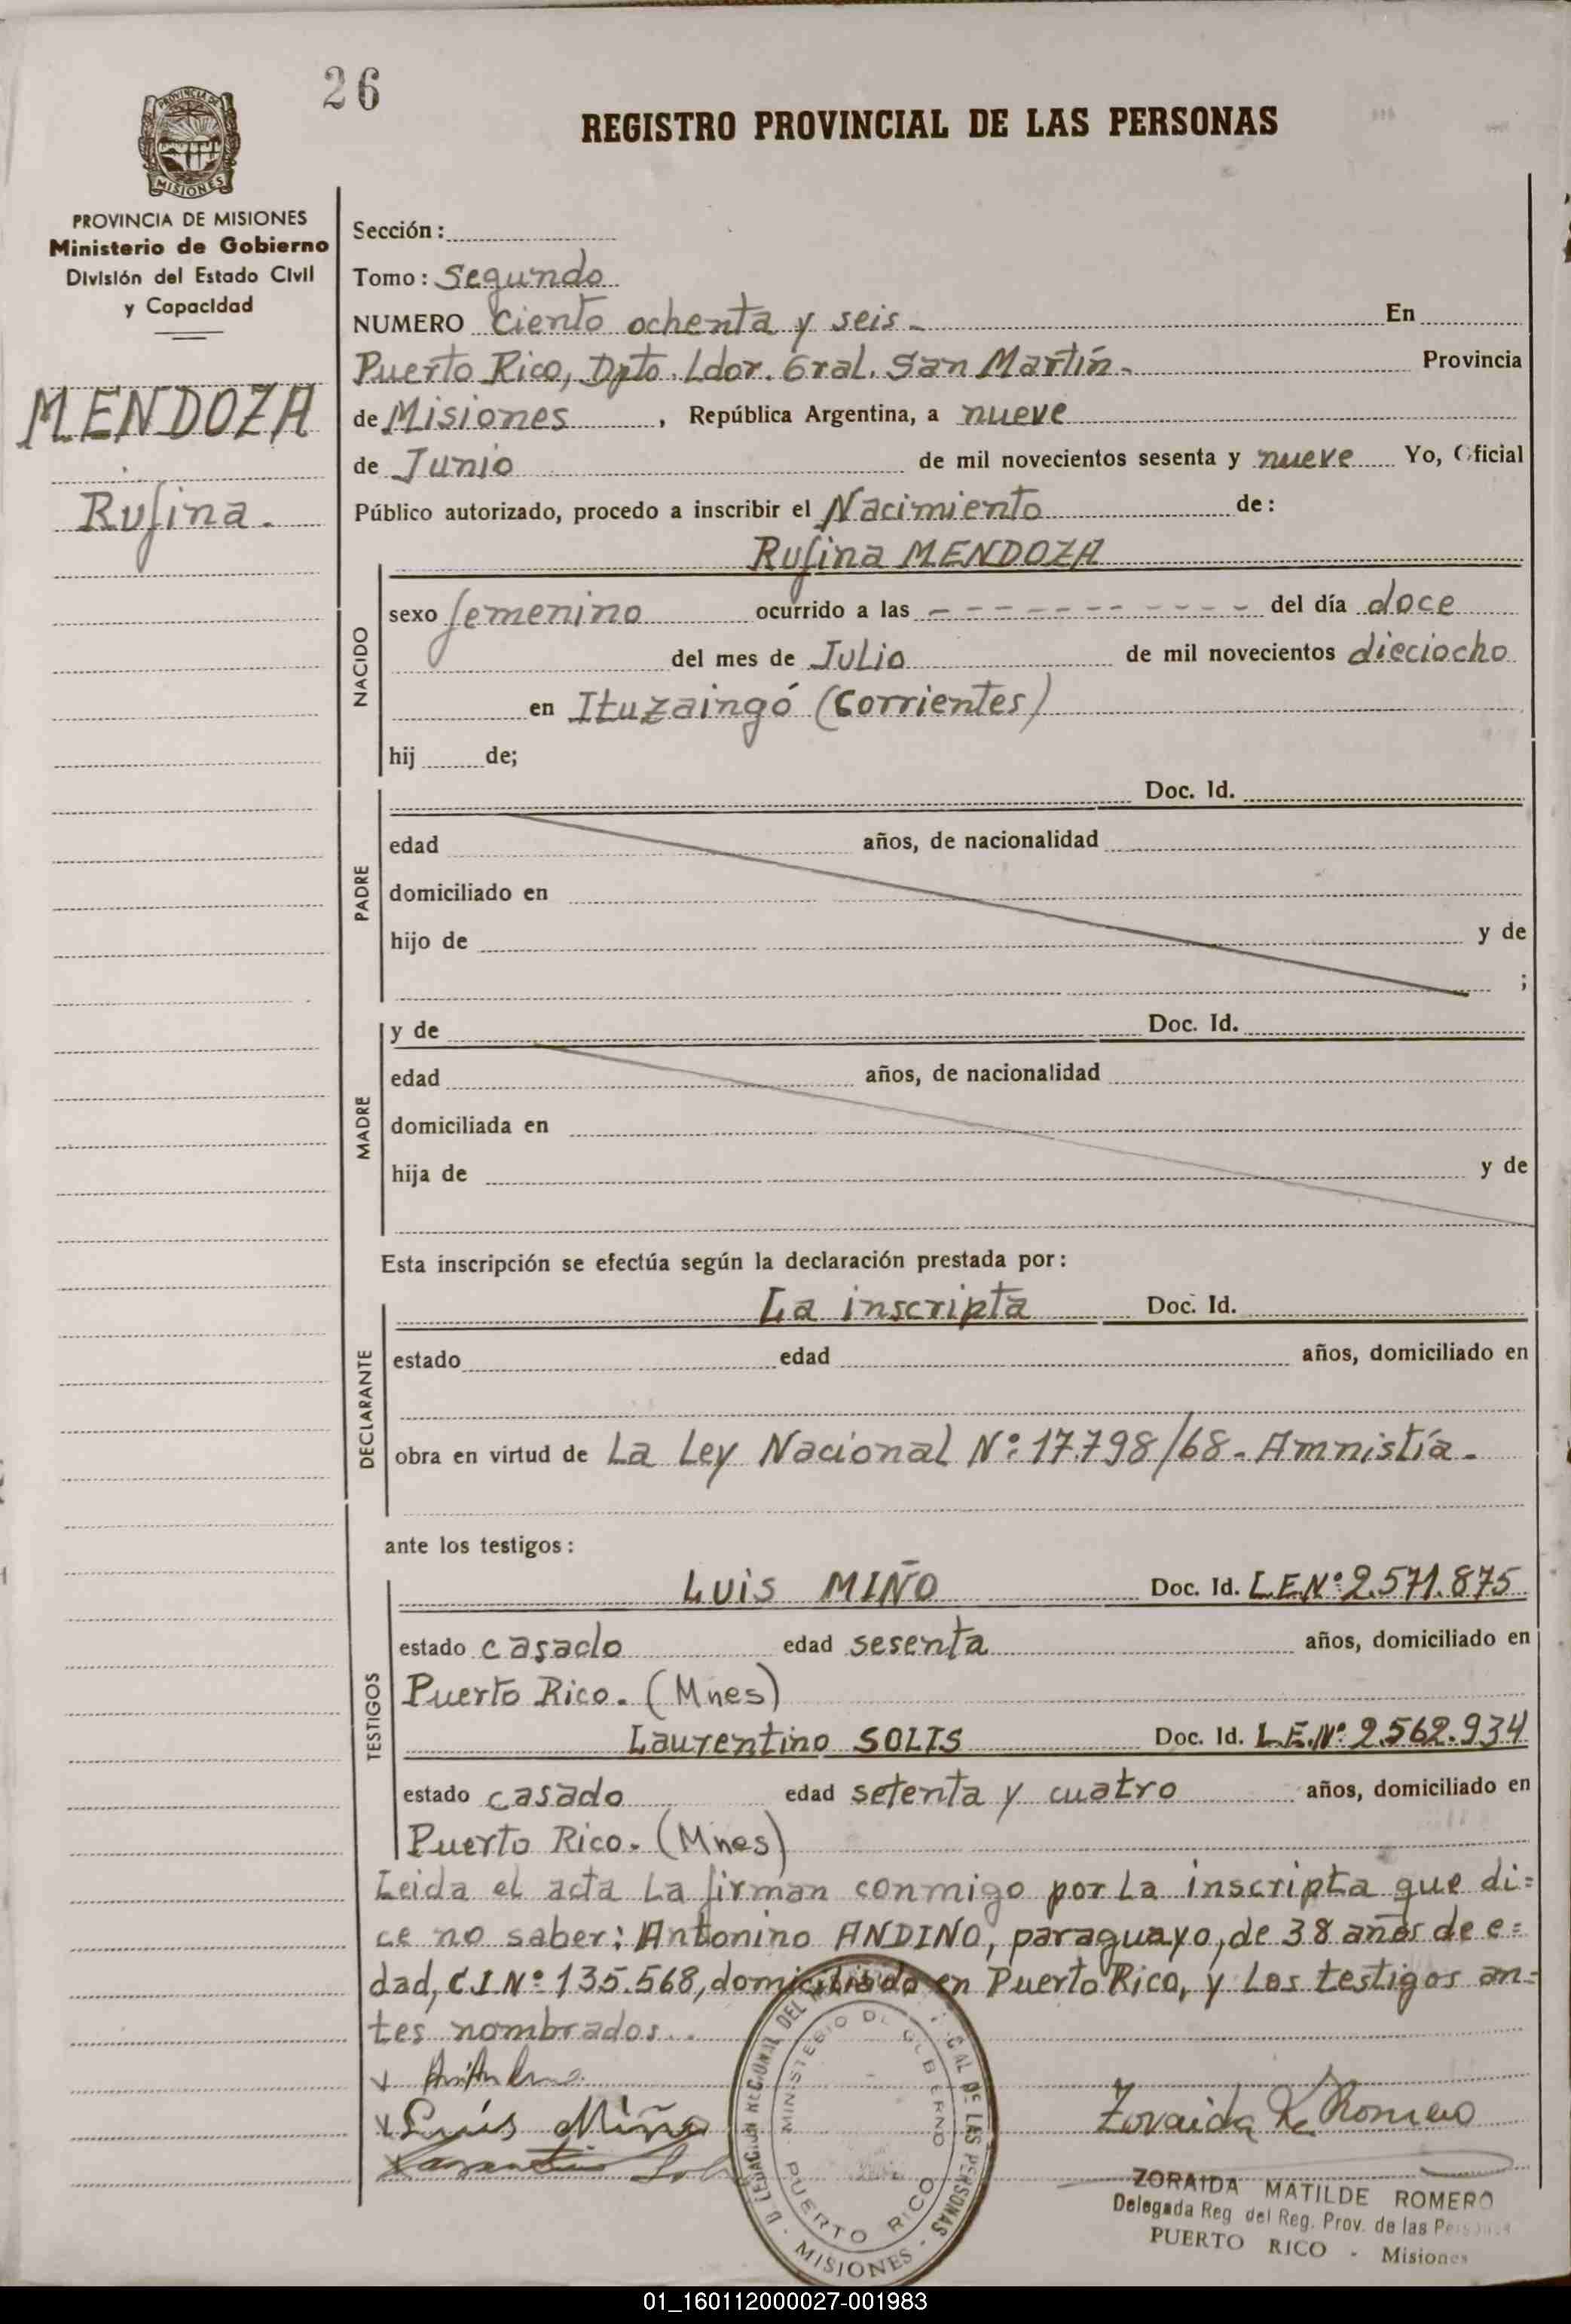 26
REGISTRO PROVINCIAL DE LAS PERSONAS
PROVINCIA DE MISIONES
PROVINCIA DE MISIONES
Ministerio de Gobierno
División del Estado Civil
y Capacidad
MENDOZA
Rufina.
Sección:
Tomo: Segundo
NUMERO Ciento ochenta y seis.- En
Puerto Rico, Dpto. Ldor. Gral. San Martín.- Provincia
de Misiones, República Argentina, a nueve
de Junio de mil novecientos sesenta y nueve Yo, Oficial
Público autorizado, procedo a inscribir el Nacimiento de:
Rufina MENDOZA
NACIDO
sexo femenino ocurrido a las - - - - - - - - - - - del día doce
del mes de Julio de mil novecientos dieciocho
en Ituzaingó (Corrientes)
hij de;
PADRE
Doc. Id.
edad años, de nacionalidad
domiciliado en
hijo de y de
;
MADRE
y de Doc. Id.
edad años, de nacionalidad
domiciliada en
hija de y de
Esta inscripción se efectúa según la declaración prestada por:
DECLARANTE
La inscripta Doc. Id.
estado edad años, domiciliado en
obra en virtud de La Ley Nacional Nº: 17.798/68.- Amnistía.-
ante los testigos:
TESTIGOS
Luis MIÑO Doc. Id. L.E.Nº: 2.571.875
estado casado edad sesenta años, domiciliado en
Puerto Rico. (Mnes)
Laurentino SOLIS Doc. Id. L.E.Nº: 2.562.934
estado casado edad setenta y cuatro años, domiciliado en
Puerto Rico. (Mnes)
Leida el acta la firman conmigo por la inscripta que di=
ce no saber: Antonino ANDINO, paraguayo, de 38 años de e=
dad, C.I.Nº 135.568, domiciliado en Puerto Rico, y los testigos an=
tes nombrados..
Luís Miño
Zoraida R. de Romero
MINISTERIO DE GOBIERNO
PUERTO RICO
- MISIONES -
ZORAIDA MATILDE ROMERO
Delegada Reg del Reg. Prov. de las Personas
PUERTO RICO - Misiones
01_160112000027-001983